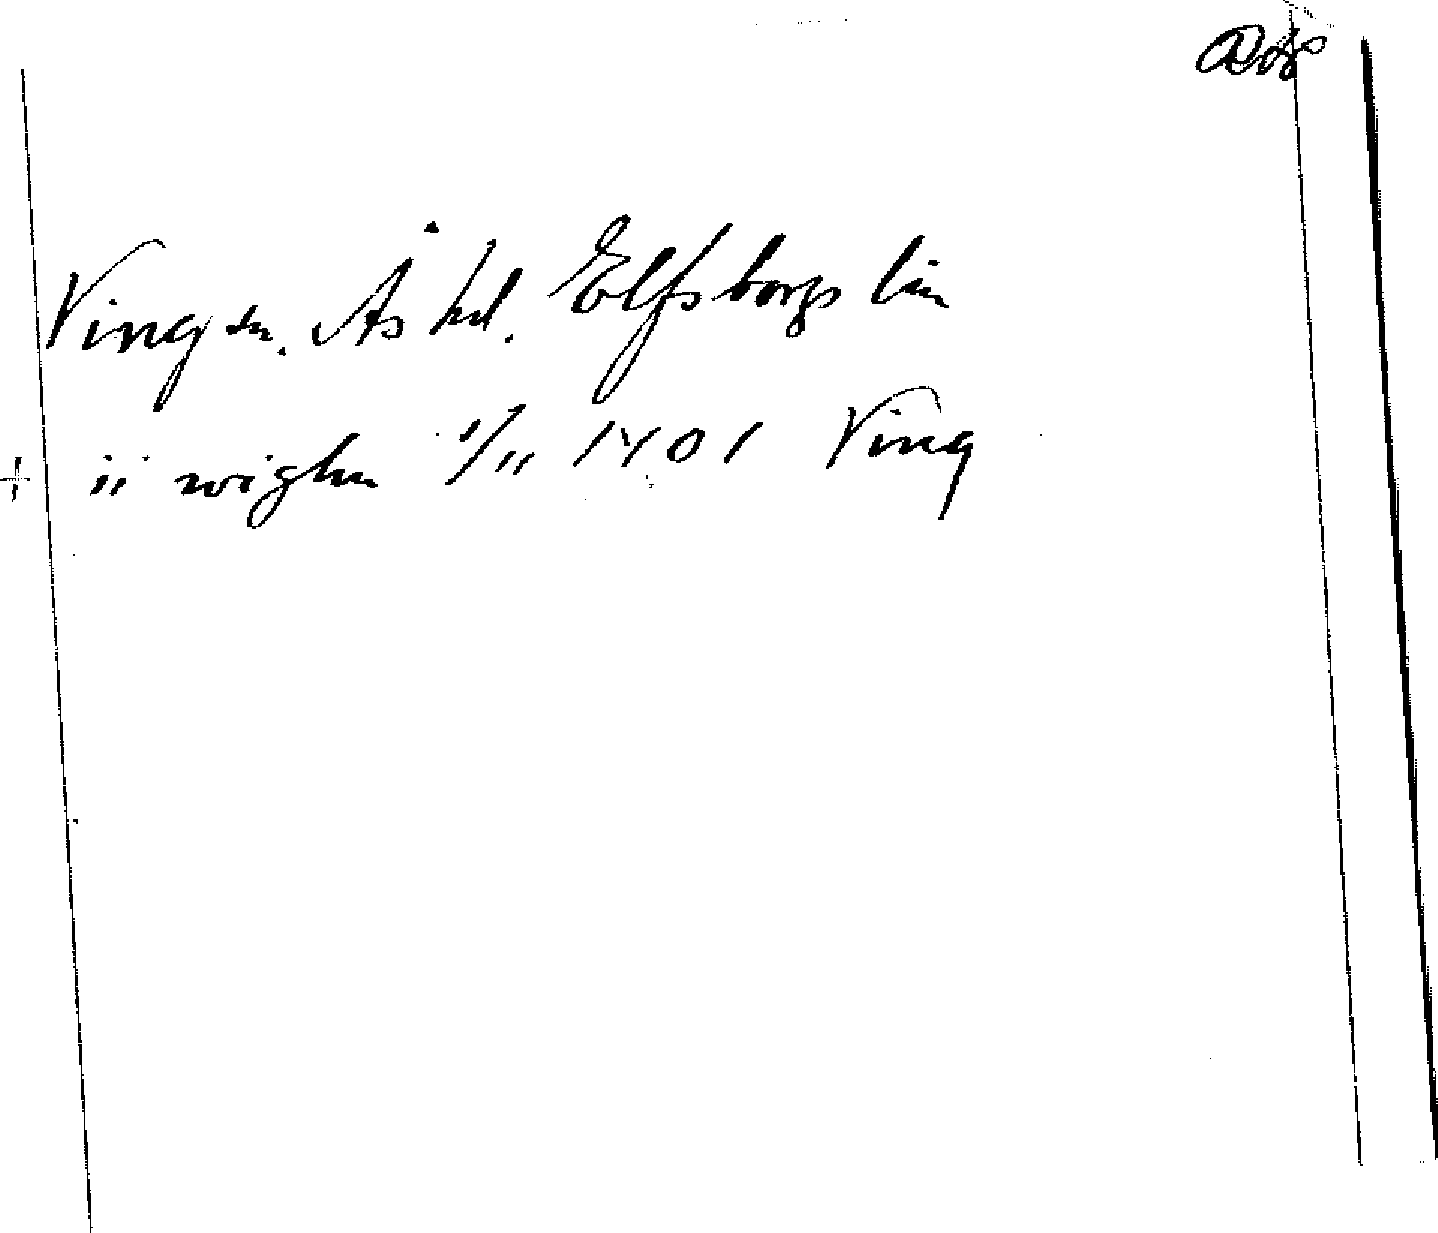 Ving sn. Ås hd. Elfsborgs län
+ ii wighn 1/11 1401 Ving